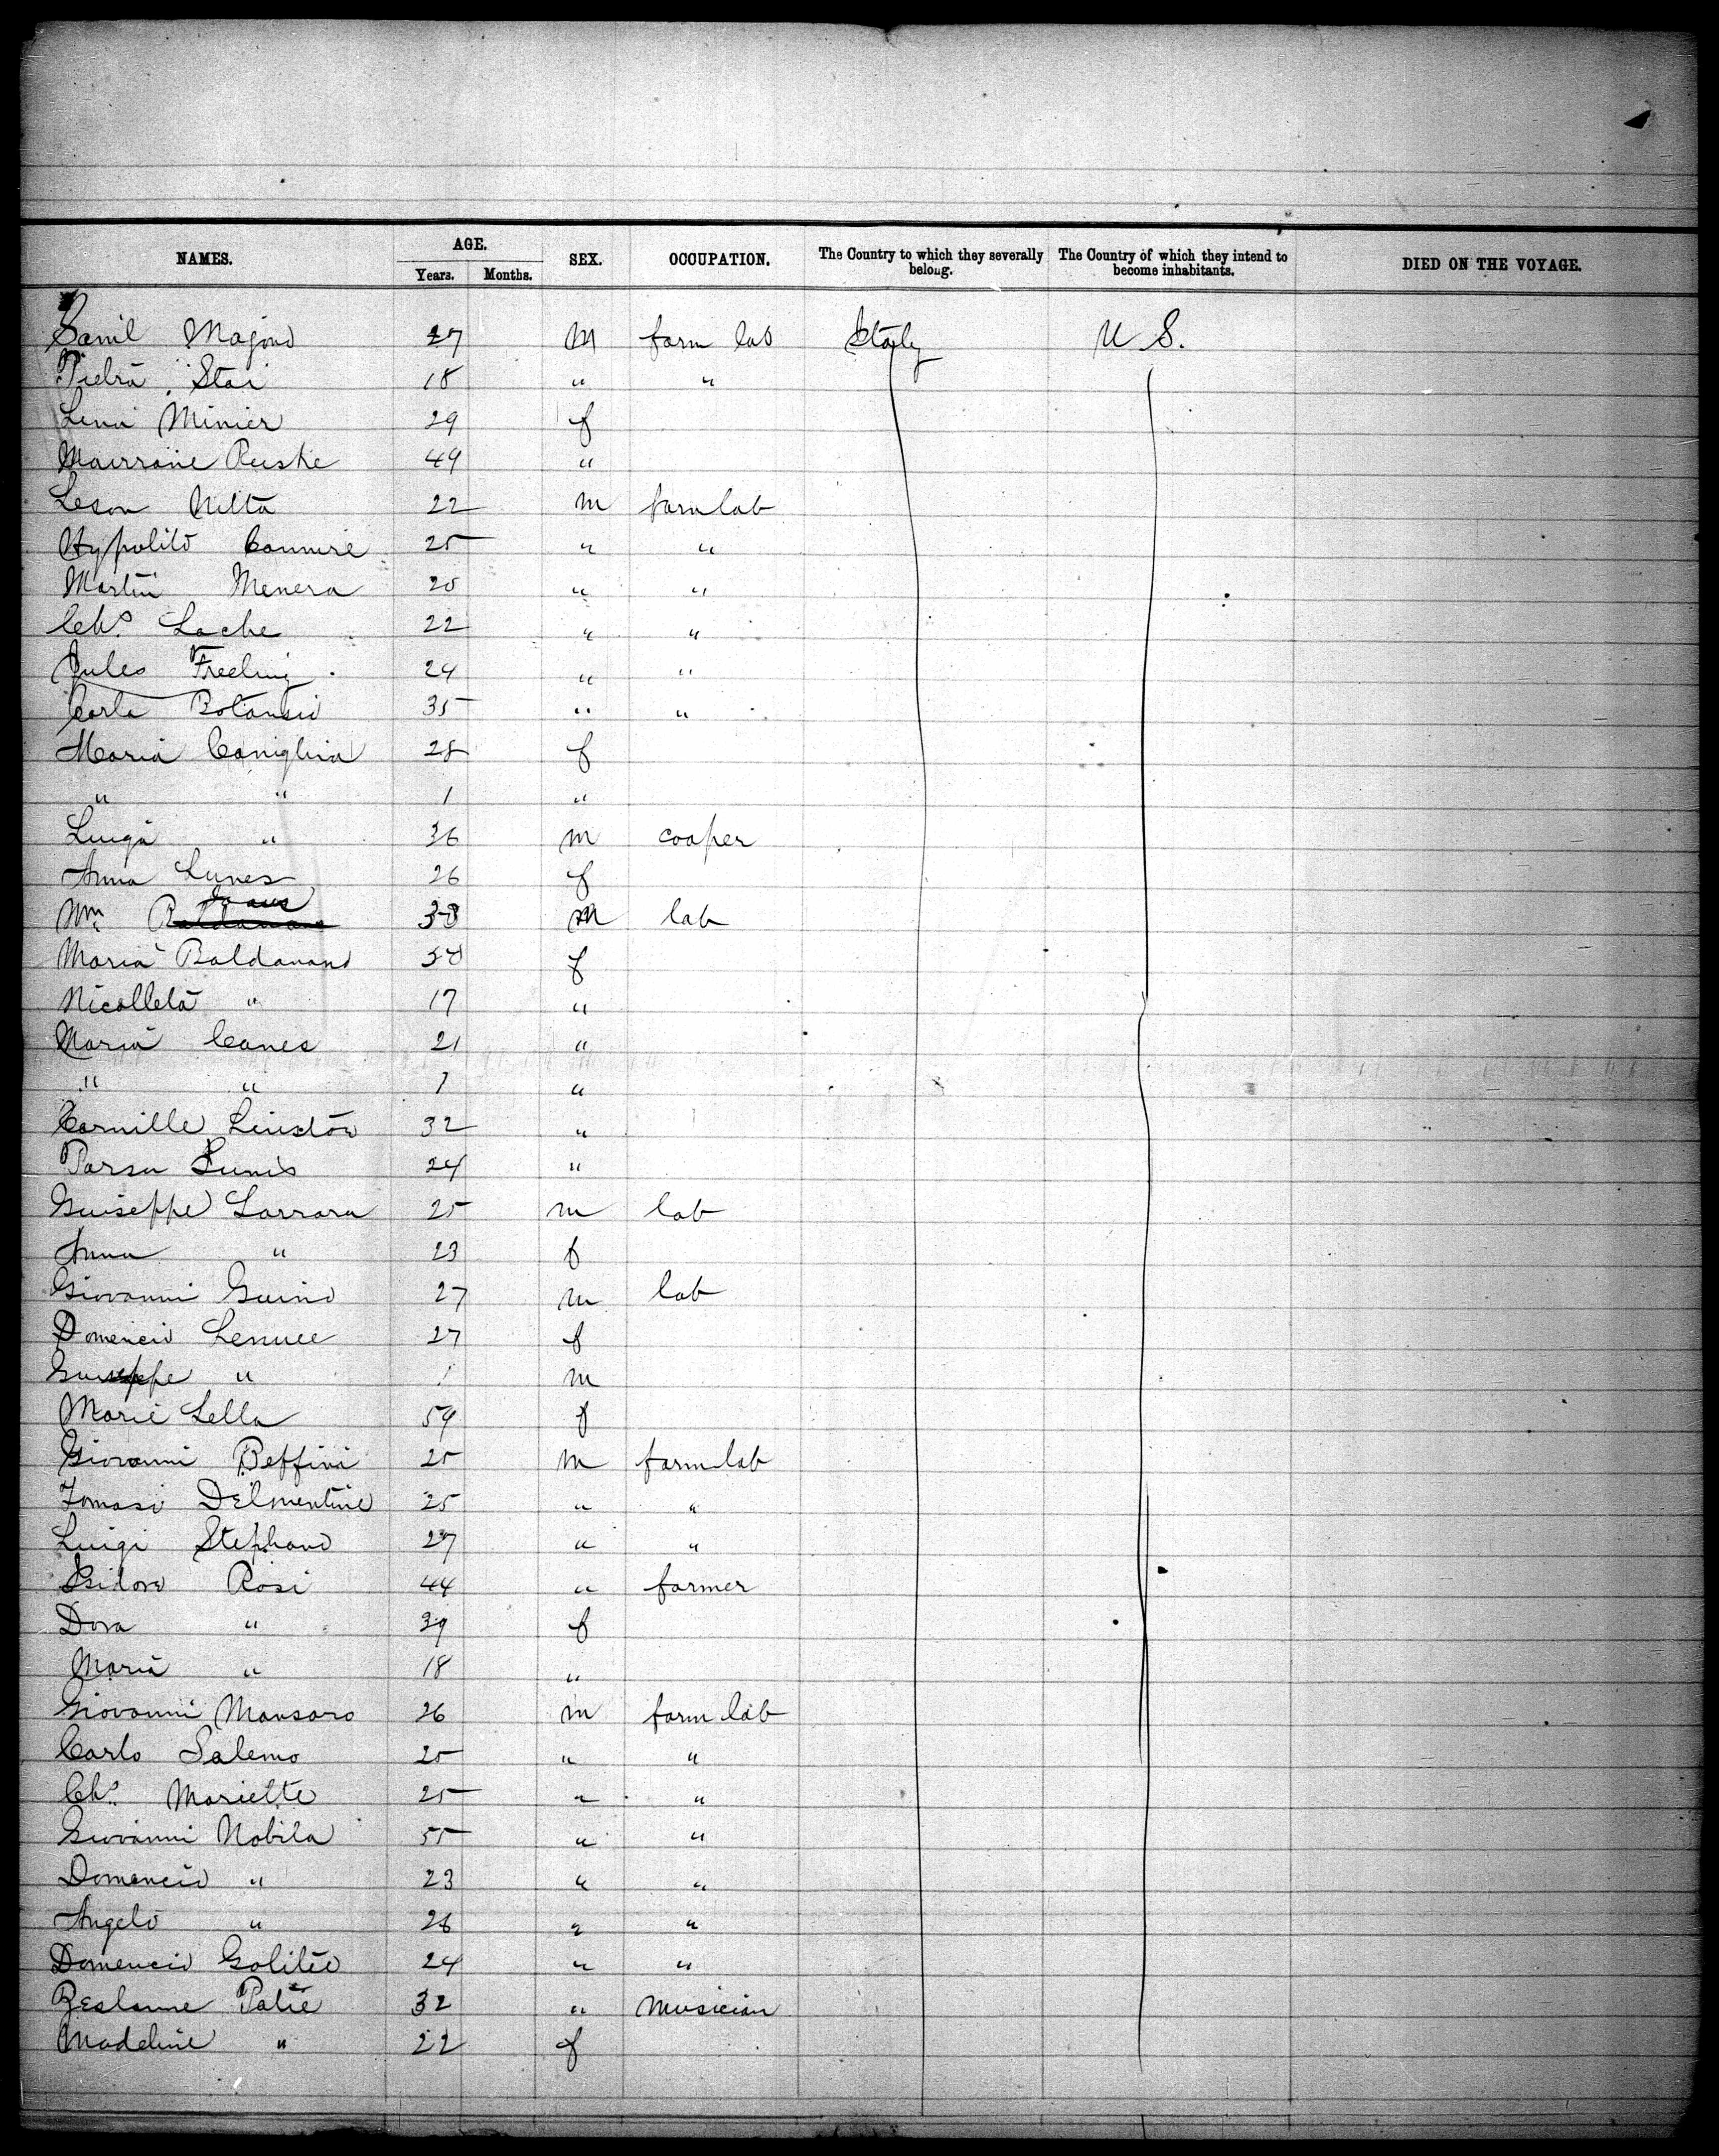 NAMES. AGE. SEX. OCCUPATION. The Country to which they severally belong. The Country of which they intend to become inhabitants. DIED ON THE VOYAGE.
Years. Months.
27 M farm lab Italy U S.
Pietra Stai 18 " "
Lena Minier 29 f
49 "
Leson Nitta 22 m farm lab
Hypolito 25 " "
Martin Menera 20 " "
Chs. Lache 22 " "
Jules Freeling 24 " "
Carlo Botansio 35 " "
Maria Caniglia 28 f
" " 1 "
Luiga " 36 m cooper
Anna Lunes 26 f
Wm. 38 m lab
Maria Baldanano f
Nicolleta " 17 "
Maria Canes 21 "
" " 1 "
Camille Linston 32 "
Parsa Lunis 24 "
Guiseppe Larrara 25 m lab
Anna " 23 f
Giovanni Guino 27 m lab
Domencio 27 f
Guiseppe " 1 m
Marie Lella 59 f
Giovanni Beffini 25 m farm lab
Tomasi Delmentine 25 " "
Luigi Stephano 27 " "
Isidore Rosi 44 " farmer
Dora " 39 f
Maria " 18 "
Giovanni Mansaro 26 m farm lab
Carlo Salemo 25 " "
Chs. Mariette 25 " "
Giovanni Nobila 55 " "
Domencio " 23 " "
Angelo " 26 " "
Domencio Galileo 24 " "
Patie 32 " musician
Madeline " 22 f